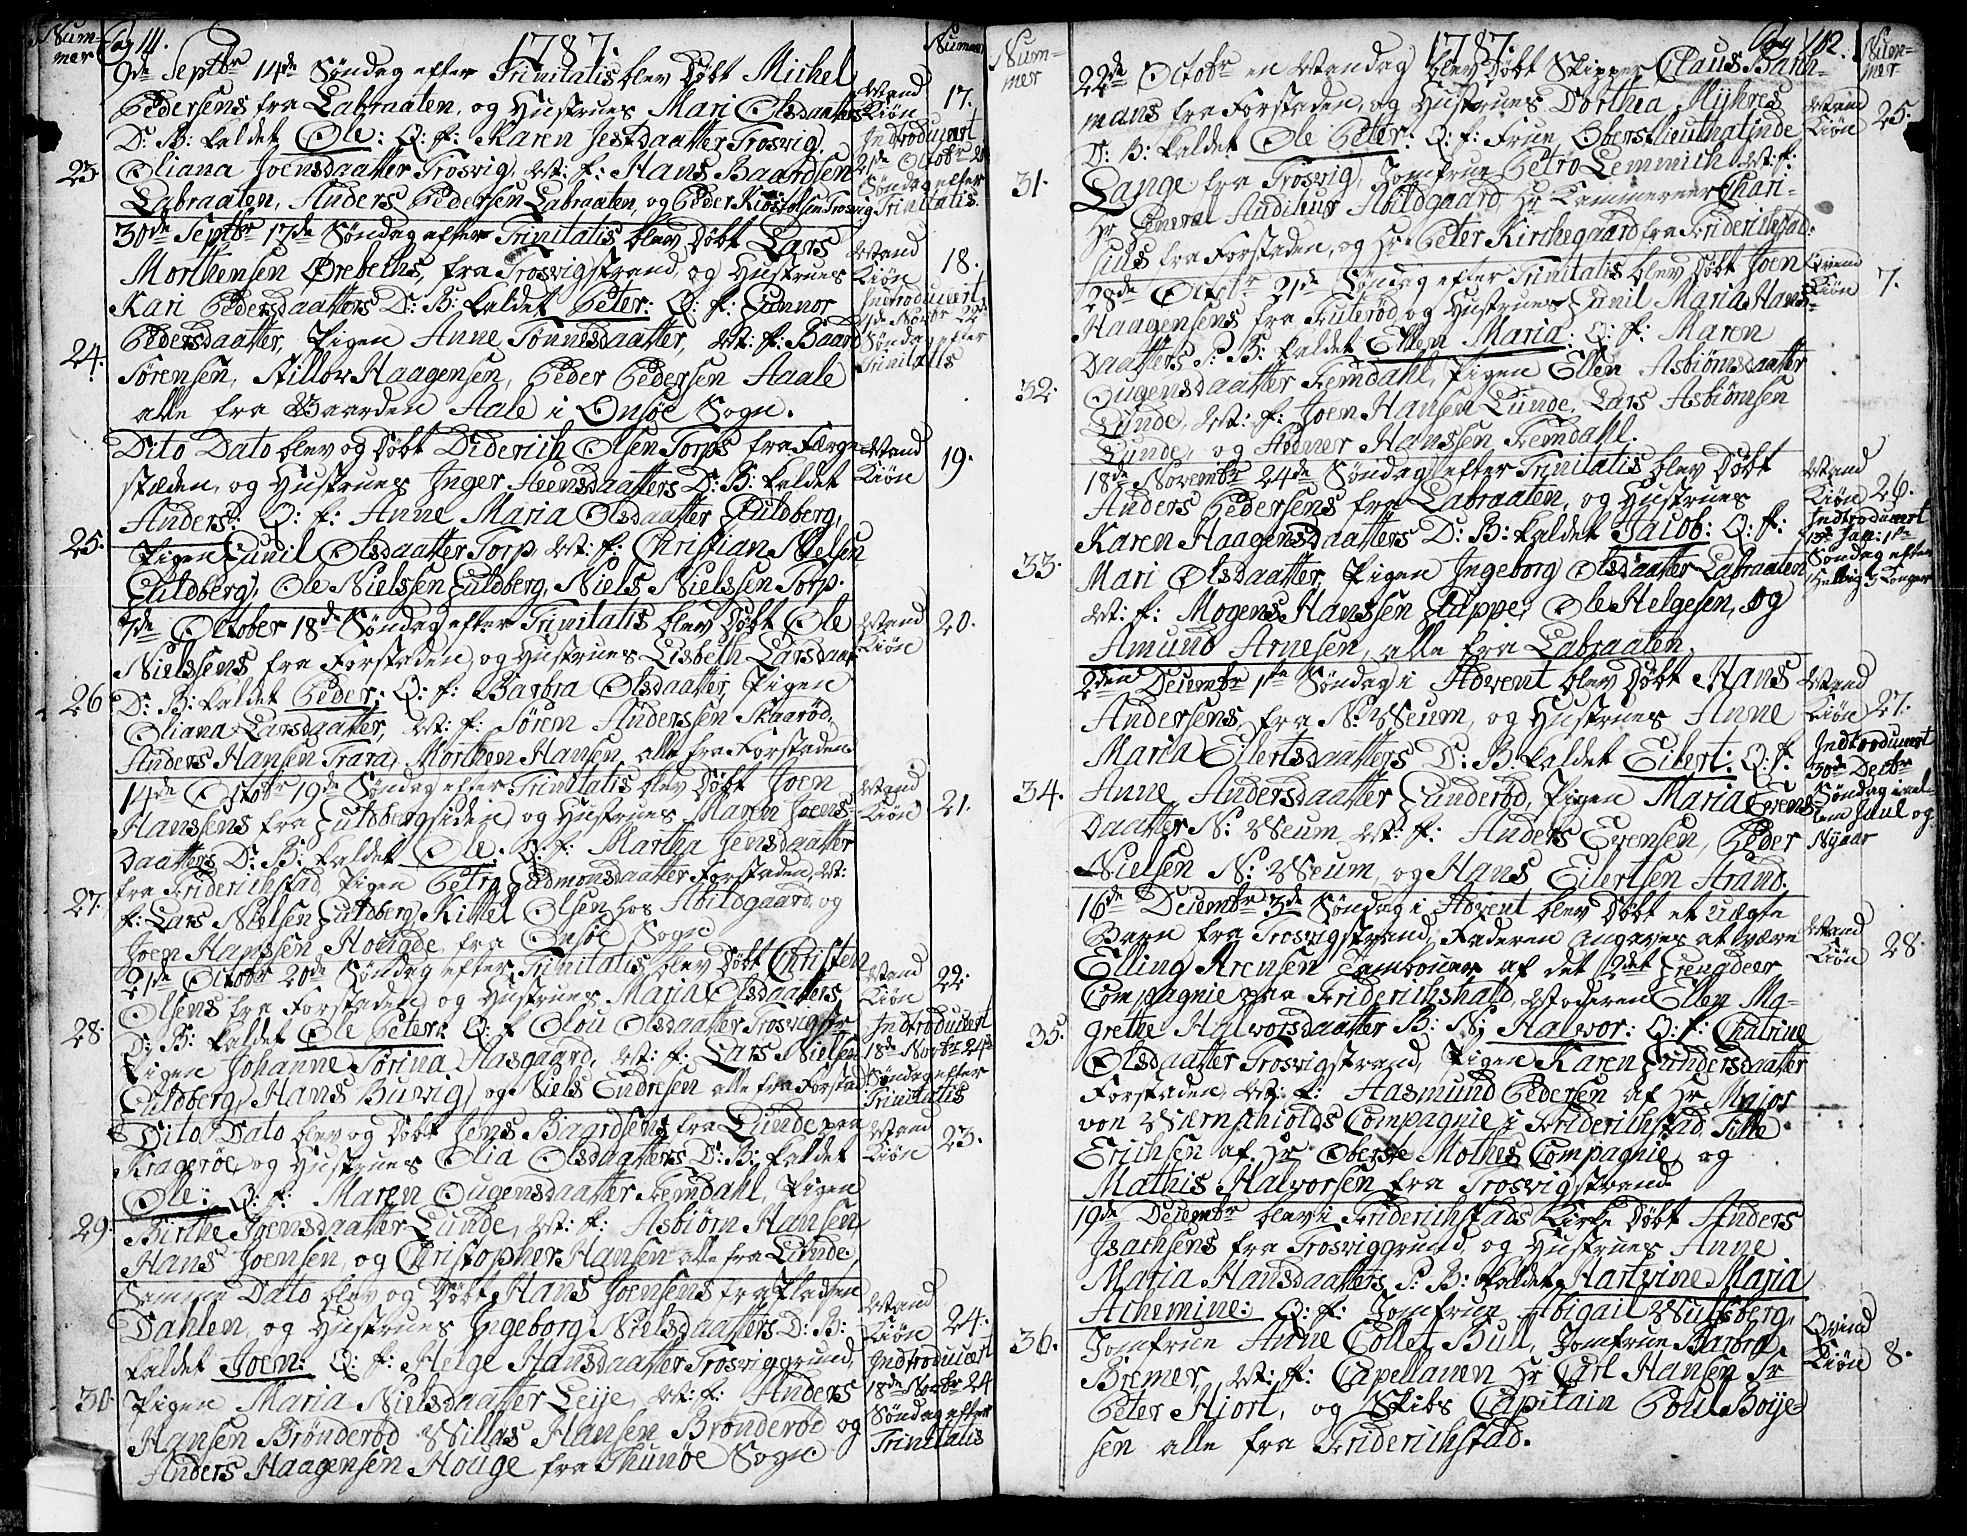 Num-
mer
Pag 111.
1787.
Nummer
9de Septbr 14de Søndag efter Trinitatis blev Døbt Michel
Pedersens fra Labraaten, og Hustrues Mari Olsdaatters
D: B: kaldet Ole: Q: f: Karen Jensdaatter Trosvig,
23.
Oliana Joensdaatter Trosvig, M: f: Hans Baardsen
Labraaten, Anders Pedersen Labraaten, og Peder Kiostolsen Trosvig
Mand
Kiøn
17.
Indtroducert
21de Octobr 20
Søndag efter
Trinitatis.
30de Septbr 17de Søndag efter Trinitatis blev Døbt Lars
Morthensen Ørebechs, fra Trosvigstrand, og Hustrues
Kari Pedersdaatters D: B: kaldet Peter: Q: f: Gunnor
Pedersdaatter, Pigen Anne Tønnesdaatter, M: f: Baard
24.
Sørensen, Stillov Haagensen, Peder Pedersen Aale
alle fra Gaarden Aale i Onsøe Sogn.
Mand
Kiøn
18.
Indtroducert
4de Novbr 22de
Søndag efter
Trinitatis
Dito Dato blev og Døbt Diderich Olsen Torps fra Færge-
stæden, og Hustrues Inger Heensdaatters D: B: kaldet
Anders: Q: f: Anne Maria Olsdaatter Guldberg,
25.
Pigen Gunil Olsdaatter Torp, M: f: Christian Nielsen
Guldberg, Ole Nielssen Guldberg, Niels Nielssen Torp.
Mand
Kiøn
19.
7de October 18de Søndag efter Trinitatis blev Døbt Ole
Nielssens fra Forstaden, og Hustrues Lisbeth Larsdaat
26
D: B: kaldet Peder: Q: f: Barbra Olsdaatter, Pigen
Oliana Larsdaatter, M: f: Sørem Anderssen Skaarød,
Anders Hansen Trara, Morthen Hansen, alle fra Forstaden
Mand
Kiøn
20.
14de Octobr 19de Søndag efter Trinitatis blev Døbt Joen
Hanssens fra Guldbergsiden, og Hustrues Maren Joens-
daatters D: B: kaldet Ole: Q: f: Martha Jensdaatter
fra Friderichstad, Pigen Petra Gudmonsdaatter Forstaden, M:
27.
f: Lars Nielsen Guldberg, Kittel Olsen hos Abildgaard, og
Joen Hanssen Hougde, fra Onsøe Sogn
Mand
Kiøn
21.
21de Octobr 20de Søndag efter Trinitatis blev Døbt Christen
Olsens fra Forstaden, og Hustrues Maria Olsdaatters
28.
D: B: kaldet Ole Peter: Q: f Olou Olsdaatter Trosvigstr
Pigen Johanne Sørina Aasgaard, M: f: Lars Nielsen
Guldberg, Hans Buvig, og Niels Endresen alle fra Forstad
Mand
Kiøn
22.
Indtroducert
18de Novbr 24de
Søndag efter
Trinitatis
Dito Dato blev og Døbt Jens Baardsens fra Lunde paa
Kragerøe, og Hustrues Olia Olsdaatters D: B: kaldet
Ole: Q: f: Maren Ougensdaatter Femdahl, Pigen
29.
Birthe Joensdaatter Lunde, M: f: Asbiørn Hansen
Hans Joensen, og Christopher Hansen alle fra Lunde,
Mand
Kiøn
23.
Samme Dato blev og Døbt Hans Joensens fra Fladen
Dahlen, og Hustrues Ingeborg Nielsdaatters D: B:
kaldet Joen: Q: f: Helge Hansdaatter Trosviggrund,
30
Pigen Maria Nielsdaatter Leije, M: f: Anders
Hansen Brønderød Willas Hansen Brønderød og
Anders Haagensen Houge fra Thunøe Sogn
Mand
Kiøn
24.
Indtroducert
18de Novbr 24
Søndag efter
Trinitatis
Num-
mer
1787.
Pag 112.
Num-
mer
22de Octobr en Mandag blev Døbt Skipper Claus Barth-
mans fra Forstaden, og Hustrues Dorthea Myhres
D: B: kaldet Ole Peter: Q: f: Frue Oberstlieuthatinde
31.
Lange fra Trosvig, Jomfrue Petro Lemmich M: f:
Hr General Auditeur Abildgaard, Hr Cammereer Chari-
sius fra Forstaden, og Hr Peter Kirchegaard fra Friderichstad.
Mand
Kiøn
25.
28de Octobr 21de Søndag efter Trinitatis blev Døbt Joen
Haagensens fra Enterød, og Hustrues Gunil Maria Hans-
daatters P: B: kaldet Ellen Maria: Q: f: Maren
32.
Ougensdaatter Femdahl, Pigen Ellen Asbiørnsdaatter
Lunde, M: f: Joen Hansen Lunde, Lars Asbiørnsen
Lunde, og Hanssen Femdahl.
Qvend
Kiøn
7.
18de Novembr 24de Søndag efter Trinitatis blev Døbt
Anders Pedersens fra Labraaten, og Hustrues
Karen Haagensdaatters D: B: kaldet Jacob: Q: f:
33.
Mari Olsdaatter, Pigen Ingeborg Olsdaatter Labraaten
M: f: Mogens Hanssen Glappe, Ole Helgesen, og
Amund Arnesen, alle fra Labraaten.
Mand
Kiøn
26.
Indtroducert
13de Jan: 1ste
Søndag efter
Hellig 3 Konger
2den Decembr 1ste Søndag i Advent blev Døbt Hans
Andersens fra N: Weum, og Hustrues Anne
Maria Eilertsdaatters D: B: kaldet Eilert: Q: f:
34.
Anne Andersdaatter Gunderød, Pigen Maria Evens-
daatter N: Weum, M: f: Anders Evensen, Peder
Nielsen N: Weum, og Hans Eilertsen Strand.
Mand
Kiøn
27.
Indtroducert
30de Decbr
Søndag imel-
lem Juul og
Nyaar
16de Decembr 3de Søndag i Advent blev Døbt et uægte
Barn fra Trosvigstrand, Faderen angaves at være
Elling Arensen Tambouer af det 2det Grenadeer
Compagnie paa Friderichshald, Moderen Ellen Ma-
35.
grethe Halvorsdaatter B: N: Halvor: Q: f: Chatrine
Olsdaatter Trosvigstrand, Pigen Karen Gundersdaatter
Forstaden, M: f: Aasmund Pedersen af Hr Major
von Wærnshiolds Compagnie i Friderichstad, Tille
Erichsen af Hr Oberste Mothes Compagnie, og
Mathis Halvorsen fra Trosvigstrand
Mand
Kiøn
28.
19de Decembr blev i Friderichstads Kirke Døbt Anders
Isachsens fra Trosviggrund, og Hustrues Anne
Maria Hansdaatters P: B: kaldet Hartvine Maria
Achemine: Q: f: Jomfrue Abigail Wulfsberg,
36.
Jomfrue Anne Collet Bull, Jomfrue Barbra
Bremer, M: f: Capellanen Hr Carl Hansen Sr
Peter Hjort, og Skibs Capitain Poul Boije-
sen alle fra Friderichstad.
Qvind
Kiøn
8.